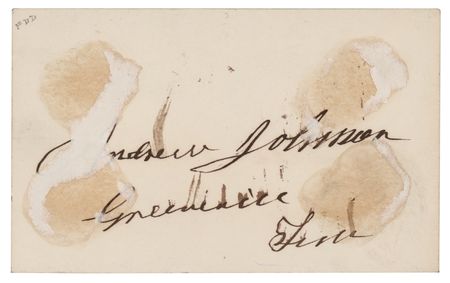 Andrew Johnson
Greeneville
Tenn